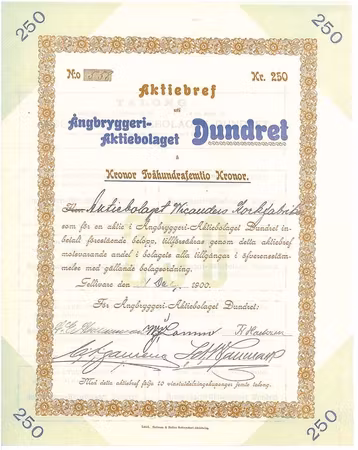 250
250
No
Kr. 250
Aktiebref
uti
Ångbryggeri-
Aktiebolaget Dundret
å
Kronor Tvåhundrafemtio Kronor.
Aktiebolaget Wicanders Korkfabriker
som för en aktie i Ångbryggeri-Aktiebolaget Dundret in-
betalt förestående belopp, tillförsäkras genom detta aktiebref
motsvarande andel i bolagets alla tillgångar i öfverensstäm-
melse med gällande bolagsordning.
Gellivare den 1 1900.
För Ångbryggeri-Aktiebolaget Dundret:
Med detta aktiebref följa 10 vinstutdelningskuponger jemte talong.
250
250